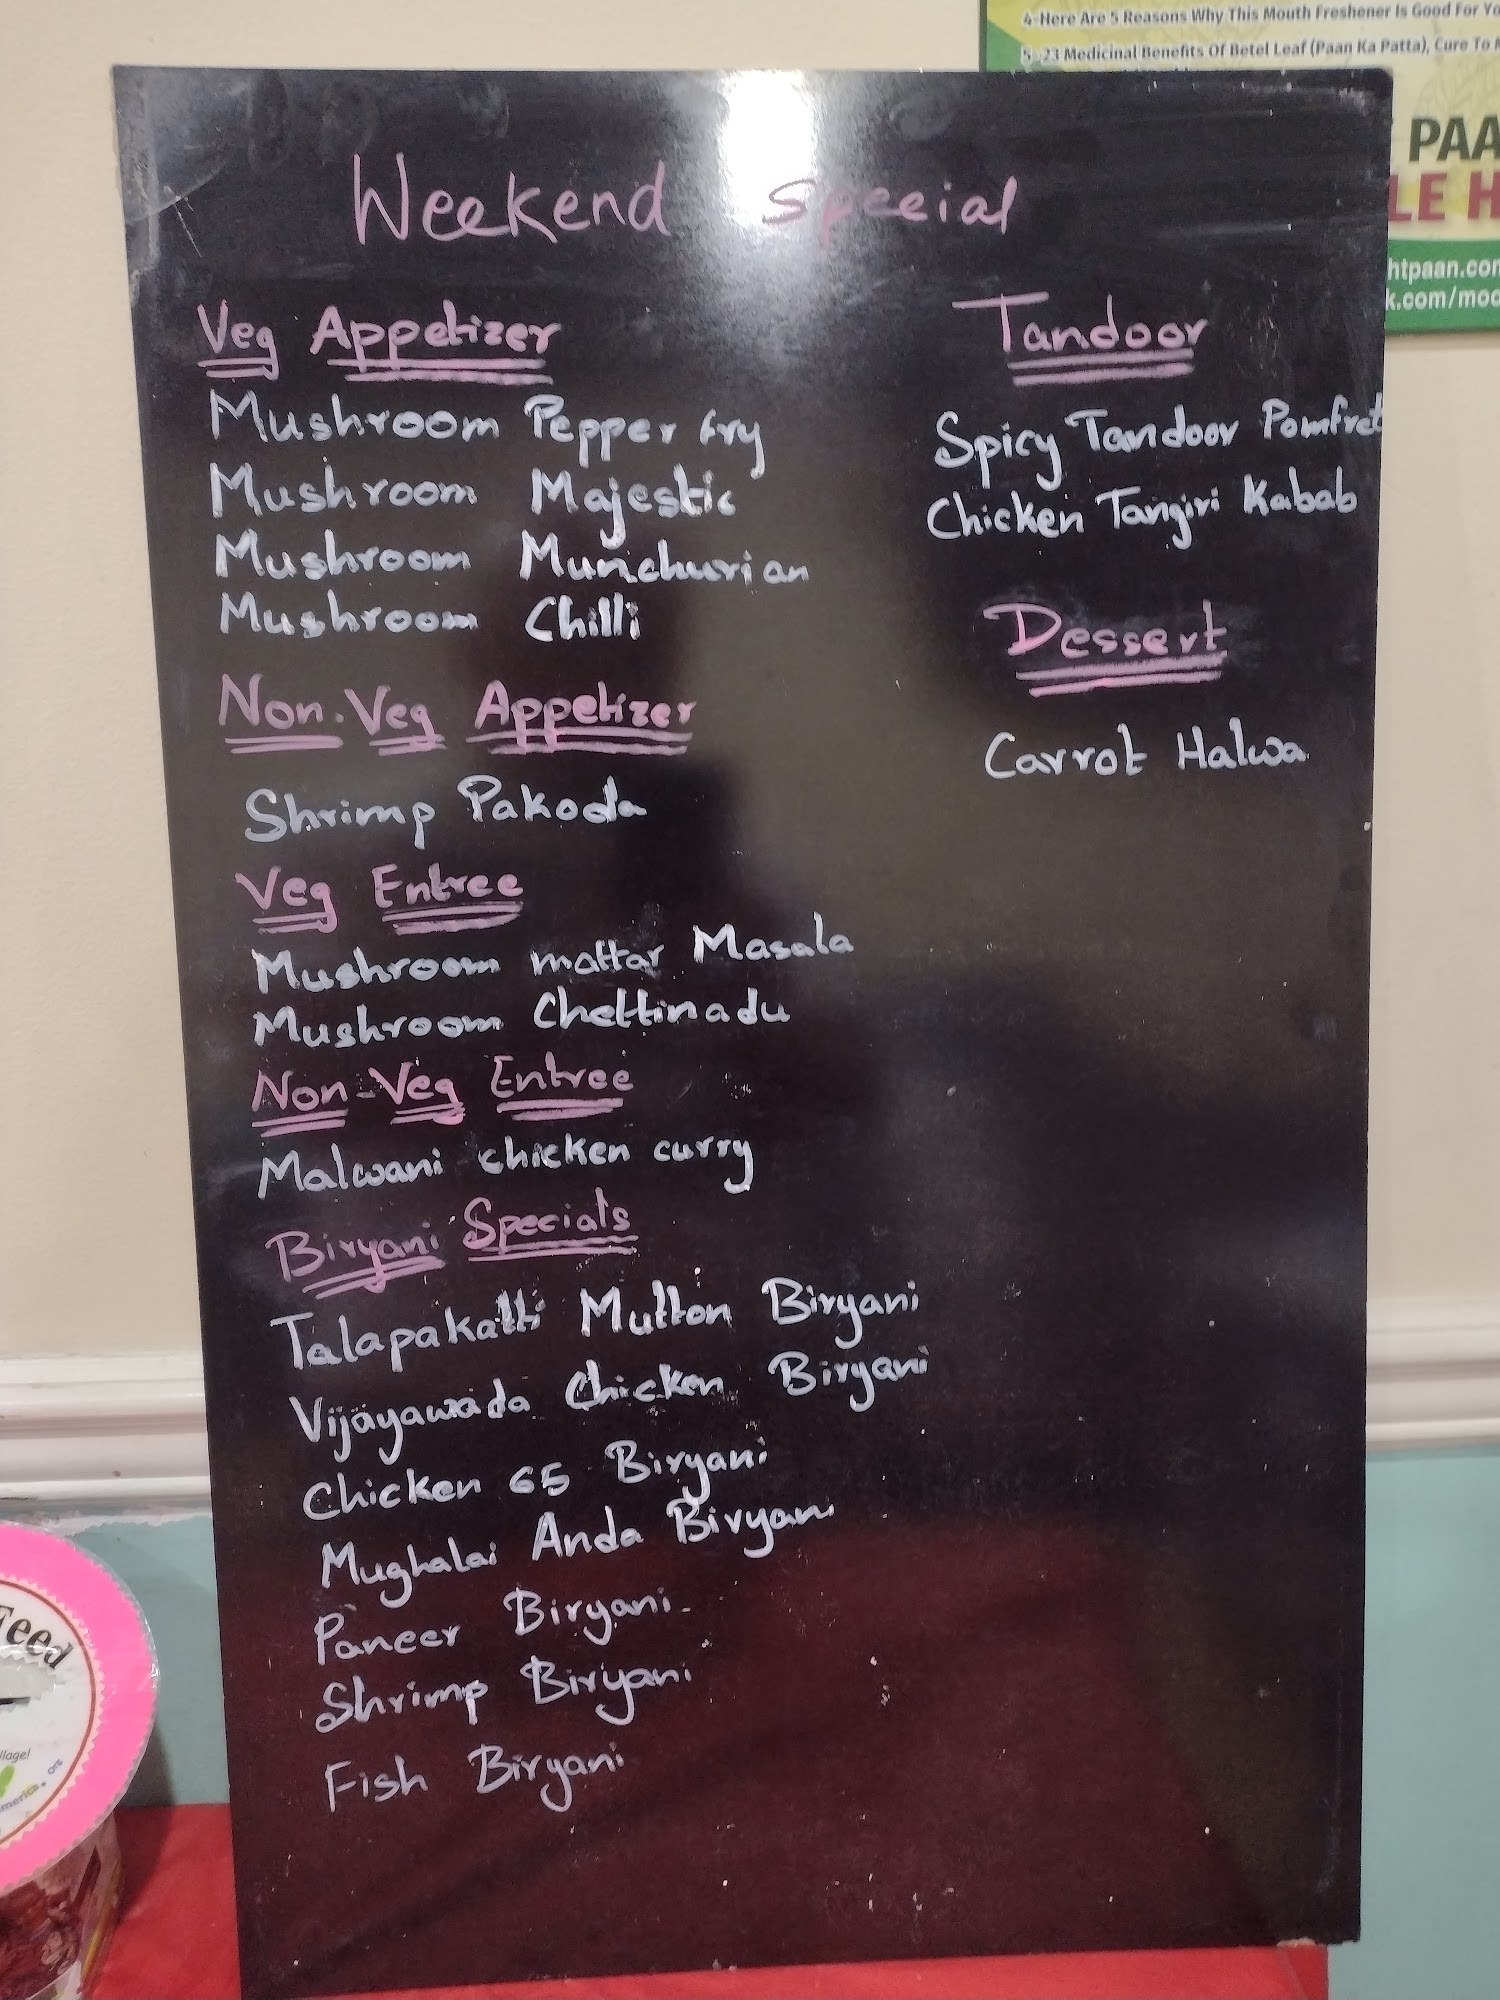 4-Here Are 5 Reasons Why This Mouth Freshener Is Good For Yo
5-23 Medicinal Benefits Of Betel Leaf (Paan Ka Patta), Cure To
PAA
LE H
htpaan.com
k.com/moo
Weekend Special
Veg Appetizer
Mushroom Pepper fry
Mushroom Majestic
Mushroom Munchurian
Mushroom Chilli
Non-Veg Appetizer
Shrimp Pakoda
Veg Entree
Mushroom mattar Masala
Mushroom Chettinadu
Non-Veg Entree
Malwani chicken curry
Biryani Specials
Talapakatti Mutton Biryani
Vijayawada Chicken Biryani
Chicken 65 Biryani
Mughalai Anda Biryani
Paneer Biryani
Shrimp Biryani
Fish Biryani
Tandoor
Spicy Tandoor Pomfret
Chicken Tangiri Kabab
Dessert
Carrot Halwa
Feed
illage!
america.org